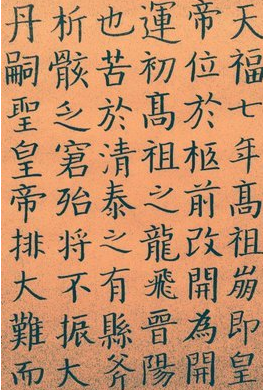 天福七年髙祖崩即皇
帝位於柩前改開為開
運初髙祖之龍飛晉陽
也苦於清泰之有縣斧
析骸之窘殆將不振大
丹嗣聖皇帝排大難而